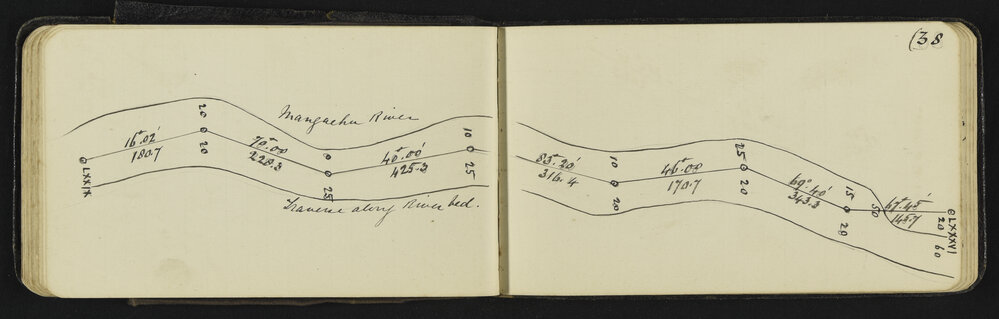 (38
Mangaehu River
20
20
16°.02'
180.7
LXXIX
70°.00
228.3
25
40°.00'
425.3
10
25
Traverse along River bed.
83°.20'
316.4
10
20
46°.00
170.7
25
20
69°.40'
343.3
15
20
50
67°.45'
145.7
LXXXVI
20
60